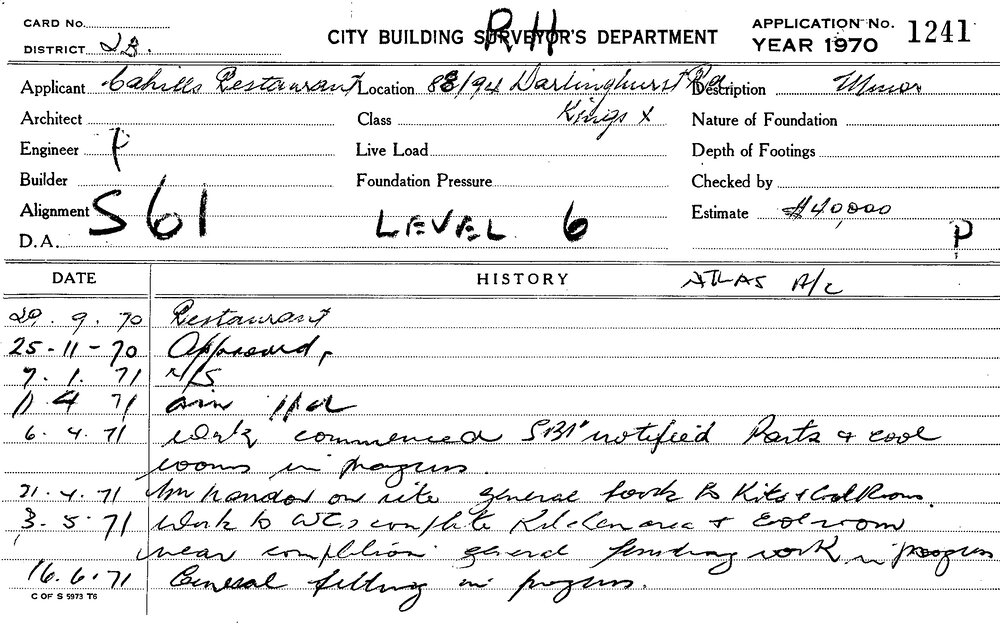 CARD No.
DISTRICT 2B.
RH
CITY BUILDING SURVEYOR'S DEPARTMENT
APPLICATION No. 1241
YEAR 1970
Applicant Cahills Restaurant Location 88/94 Darlinghurst Rd Description Minor
Architect Class Kings X Nature of Foundation
Engineer Live Load Depth of Footings
Builder Foundation Pressure Checked by
Alignment S 61 LEVEL 6 Estimate $40,000
D.A. P
DATE HISTORY ATLAS A/c
29. 9. 70 Restaurant
25-11-70 Approved,
7. 1. 71 N/S
11 4 71
6. 4. 71 Work commenced SBI notified Parts & cool
rooms in progress.
21. 4. 71 on site general work to Kits & Cool Rooms
3. 5. 71 Work to WCs complete Kitchen area & Coolroom
near completion general work in progress
16. 6. 71 General fitting in progress.
C OF S 5973 T6